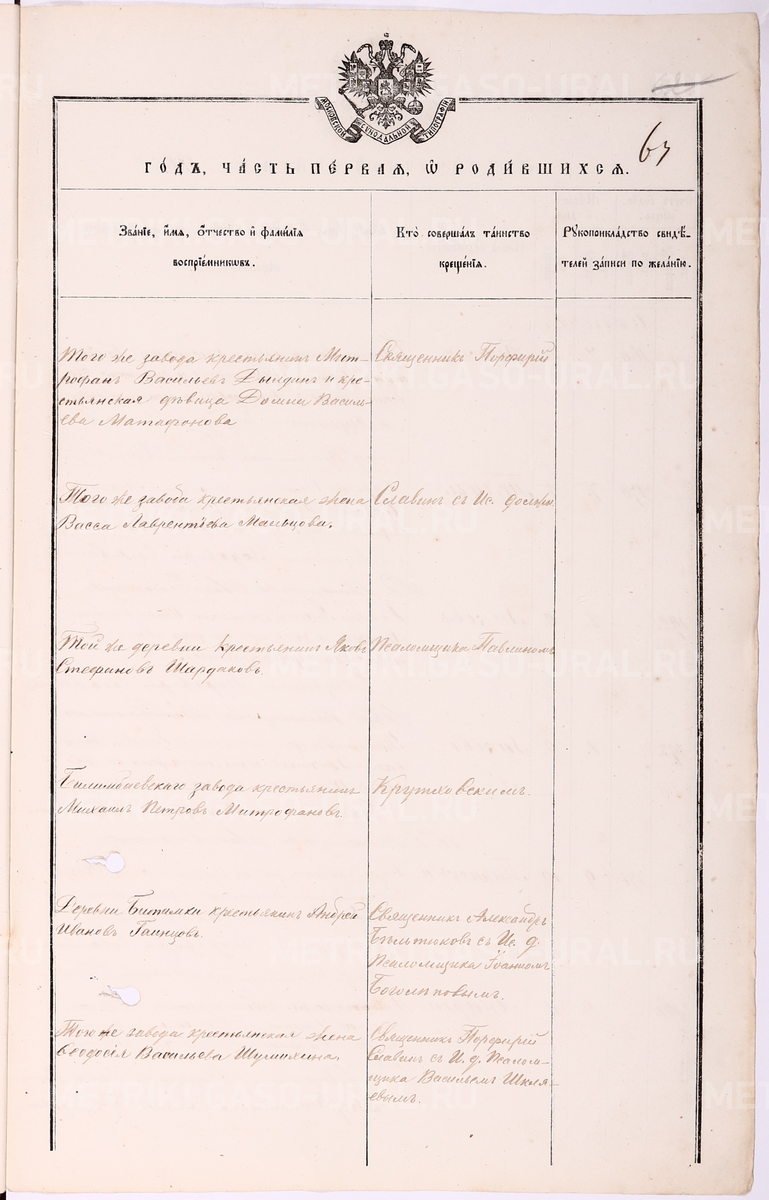 МОСКОВСКОЙ СѴНОДАЛЬНОЙ ТИПОГРАФІИ
63
ГО́ДЪ, ЧА́СТЬ ПЕ́РВАЯ, Ѡ҆ РОДИ́ВШИХСЯ.
Зва́ніе, и҆́мя, ѻ҆́тчество и҆ фами́лія
воспріе́мниковъ.
Кто̀ соверша́лъ та́инство
креще́нія.
Рꙋкоприкла́дство свидѣ́-
телей за́писи по жела́нію.
Того же завода крестьянинъ Мит-
рофанъ Васильевъ Дылдинъ и кре-
стьянская дѣвица Домна Василь-
ева Матафонова
Священникъ Порфирій
Того же завода крестьянская жена
Васса Лаврентіева Мальцова.
Славинъ съ Ис. должн.
Той же деревни крестьянинъ Яковъ
Стефановъ Шардаковъ.
Псаломщика Павлиномъ
Билимбаевскаго завода крестьянинъ
Михаилъ Петровъ Митрофановъ.
Крутиховскимъ.
Деревни Битимки крестьянинъ Андрей
Ивановъ Галицовъ.
Священникъ Александръ
Бѣльтюковъ съ Ис. д.
Псаломщика Іоанномъ
Боголѣповымъ.
Того же завода крестьянская жена
Ѳеодосія Васильева Шумихина.
Священникъ Порфирій
Славинъ съ И. д. Псалом-
щика Васильемъ Шкля-
евымъ.